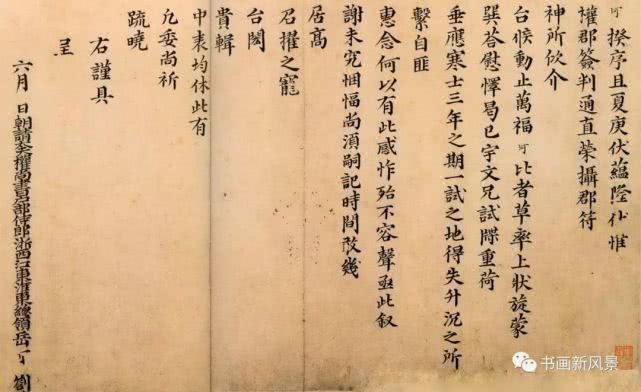 揆序且夏庚伏蘊隆仰惟
權郡簽判通直榮攝郡符
神所攸介
台候動止萬福 比者草率上狀旋蒙
巽荅慰懌曷已宇文兄試牒重荷
垂應寒士三年之期一試之地得失升沉之所
繫自匪
惠念何以有此感怍殆不容聲亟此叙
謝未究悃愊尚須嗣記時間改幾
居高
召擢之寵
台閎
貴輯
中表均休此有
委尚祈
疏曉
右謹具
呈
六月 日朝請大夫權尚書戶部侍郎浙西江東淮東總領岳 劄
书画新风景